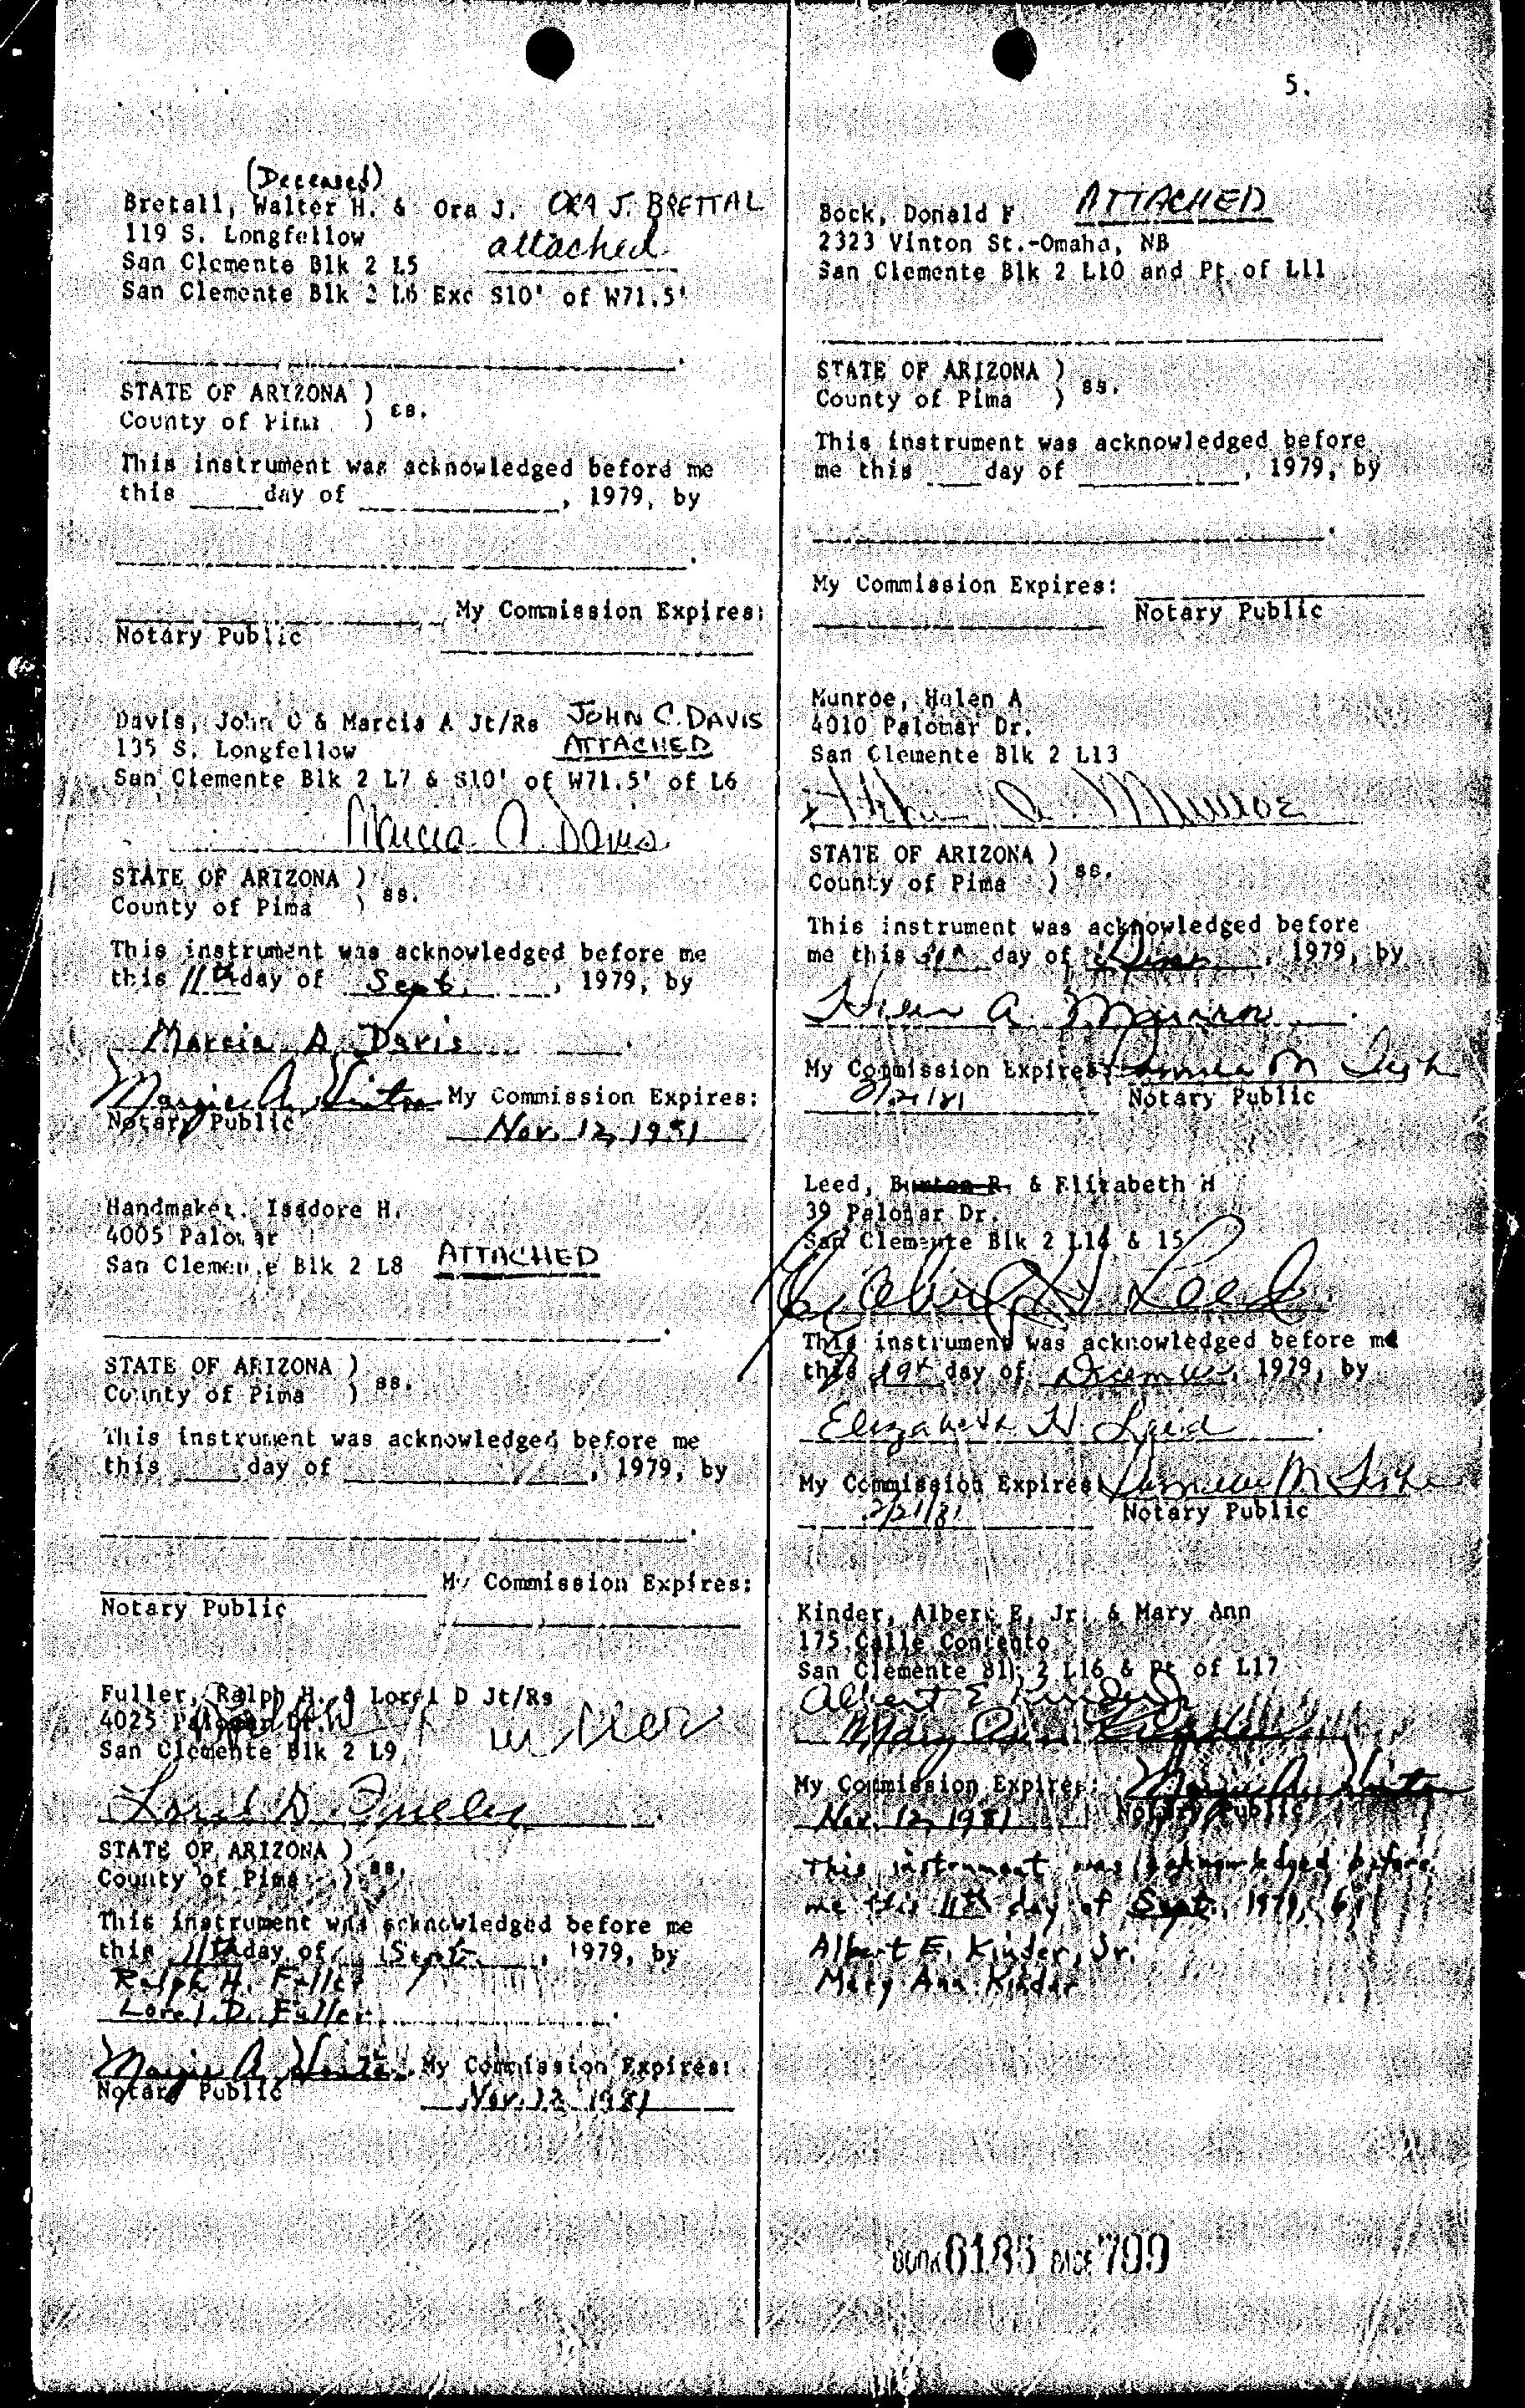 5.
(Deceased)
Bretall, Walter H. & Ora J. ORA J. BRETTAL
119 S. Longfellow attached
San Clemente Blk 2 L5
San Clemente Blk 2 L6 Exc S10' of W71.5'
STATE OF ARIZONA )
County of Pima ) ss.
This instrument was acknowledged before me
this ____ day of ____________, 1979, by
____________.
My Commission Expires:
Notary Public
Davis, John C & Marcia A Jt/Rs JOHN C. DAVIS
135 S. Longfellow ATTACHED
San Clemente Blk 2 L7 & S10' of W71.5' of L6
Marcia A. Davis
STATE OF ARIZONA )
County of Pima ) ss.
This instrument was acknowledged before me
this 11th day of Sept., 1979, by
Marcia A. Davis.
Margie A. My Commission Expires:
Notary Public
Nov. 12, 1981
Handmaker, Isadore H.
4005 Palomar
San Clemente Blk 2 L8 ATTACHED
STATE OF ARIZONA )
County of Pima ) ss.
This instrument was acknowledged before me
this ____ day of ____________, 1979, by
____________.
My Commission Expires:
Notary Public
Fuller, Ralph H. & Lorel D Jt/Rs
4025 Palomar Dr.
San Clemente Blk 2 L9
Lorel D. Fuller
STATE OF ARIZONA )
County of Pima ) ss.
This instrument was acknowledged before me
this 11th day of Sept., 1979, by
Ralph H. Fuller
Lorel D. Fuller.
Margie A. My Commission Expires:
Notary Public
Nov. 12, 1981
Bock, Donald F ATTACHED
2323 Vinton St.-Omaha, NB
San Clemente Blk 2 L10 and Pt of L11
STATE OF ARIZONA )
County of Pima ) ss.
This instrument was acknowledged before
me this ____ day of ____________, 1979, by
____________.
My Commission Expires:
Notary Public
Munroe, Helen A
4010 Palomar Dr.
San Clemente Blk 2 L13
Helen A. Munroe
STATE OF ARIZONA )
County of Pima ) ss.
This instrument was acknowledged before
me this day of, 1979, by
Helen A. Munroe.
My Commission Expires: M
2/21/81 Notary Public
Leed, Burton R. & Elizabeth H
39 Palomar Dr.
San Clemente Blk 2 L14 & 15
Elizabeth H Leed
This instrument was acknowledged before me
this 19th day of December, 1979, by
Elizabeth H. Leed.
My Commission Expires: M
2/21/81 Notary Public
Kinder, Albert E. Jr. & Mary Ann
175 Calle Contento
San Clemente Blk 2 L16 & Pt of L17
Albert E Kinder Jr
Mary Ann Kinder
My Commission Expires: Margie A.
Nov. 12, 1981 Notary Public
This instrument was acknowledged before
me this 11th day of Sept., 1979, by
Albert E. Kinder, Jr.
Mary Ann Kinder
BOOK 6185 PAGE 799